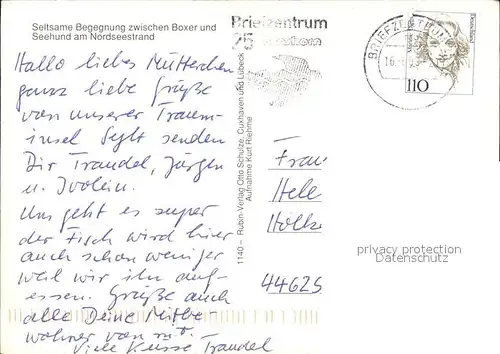 Seltsame Begegnung zwischen Boxer und
Seehund am Nordseestrand
Hallo liebes Mütterchen
ganz liebe Grüße
von unserer Traum-
insel Sylt senden
Dir Traudel, Jürgen
u.
Uns geht es super
der Fisch wird hier
auch schon weniger
weil wir ihn auf-
essen. Grüße auch
alle Deine Mitbe-
wohner von mir.
Viele Küsse Traudel
1140 – Rubin-Verlag Otto Schulze, Cuxhaven und Lübeck
Aufnahme Kurt Riehme
Briefzentrum
25
BRIEFZENTRUM
Deutschland
110
Frau
Hele
Holke
44625
privacy protection
Datenschutz